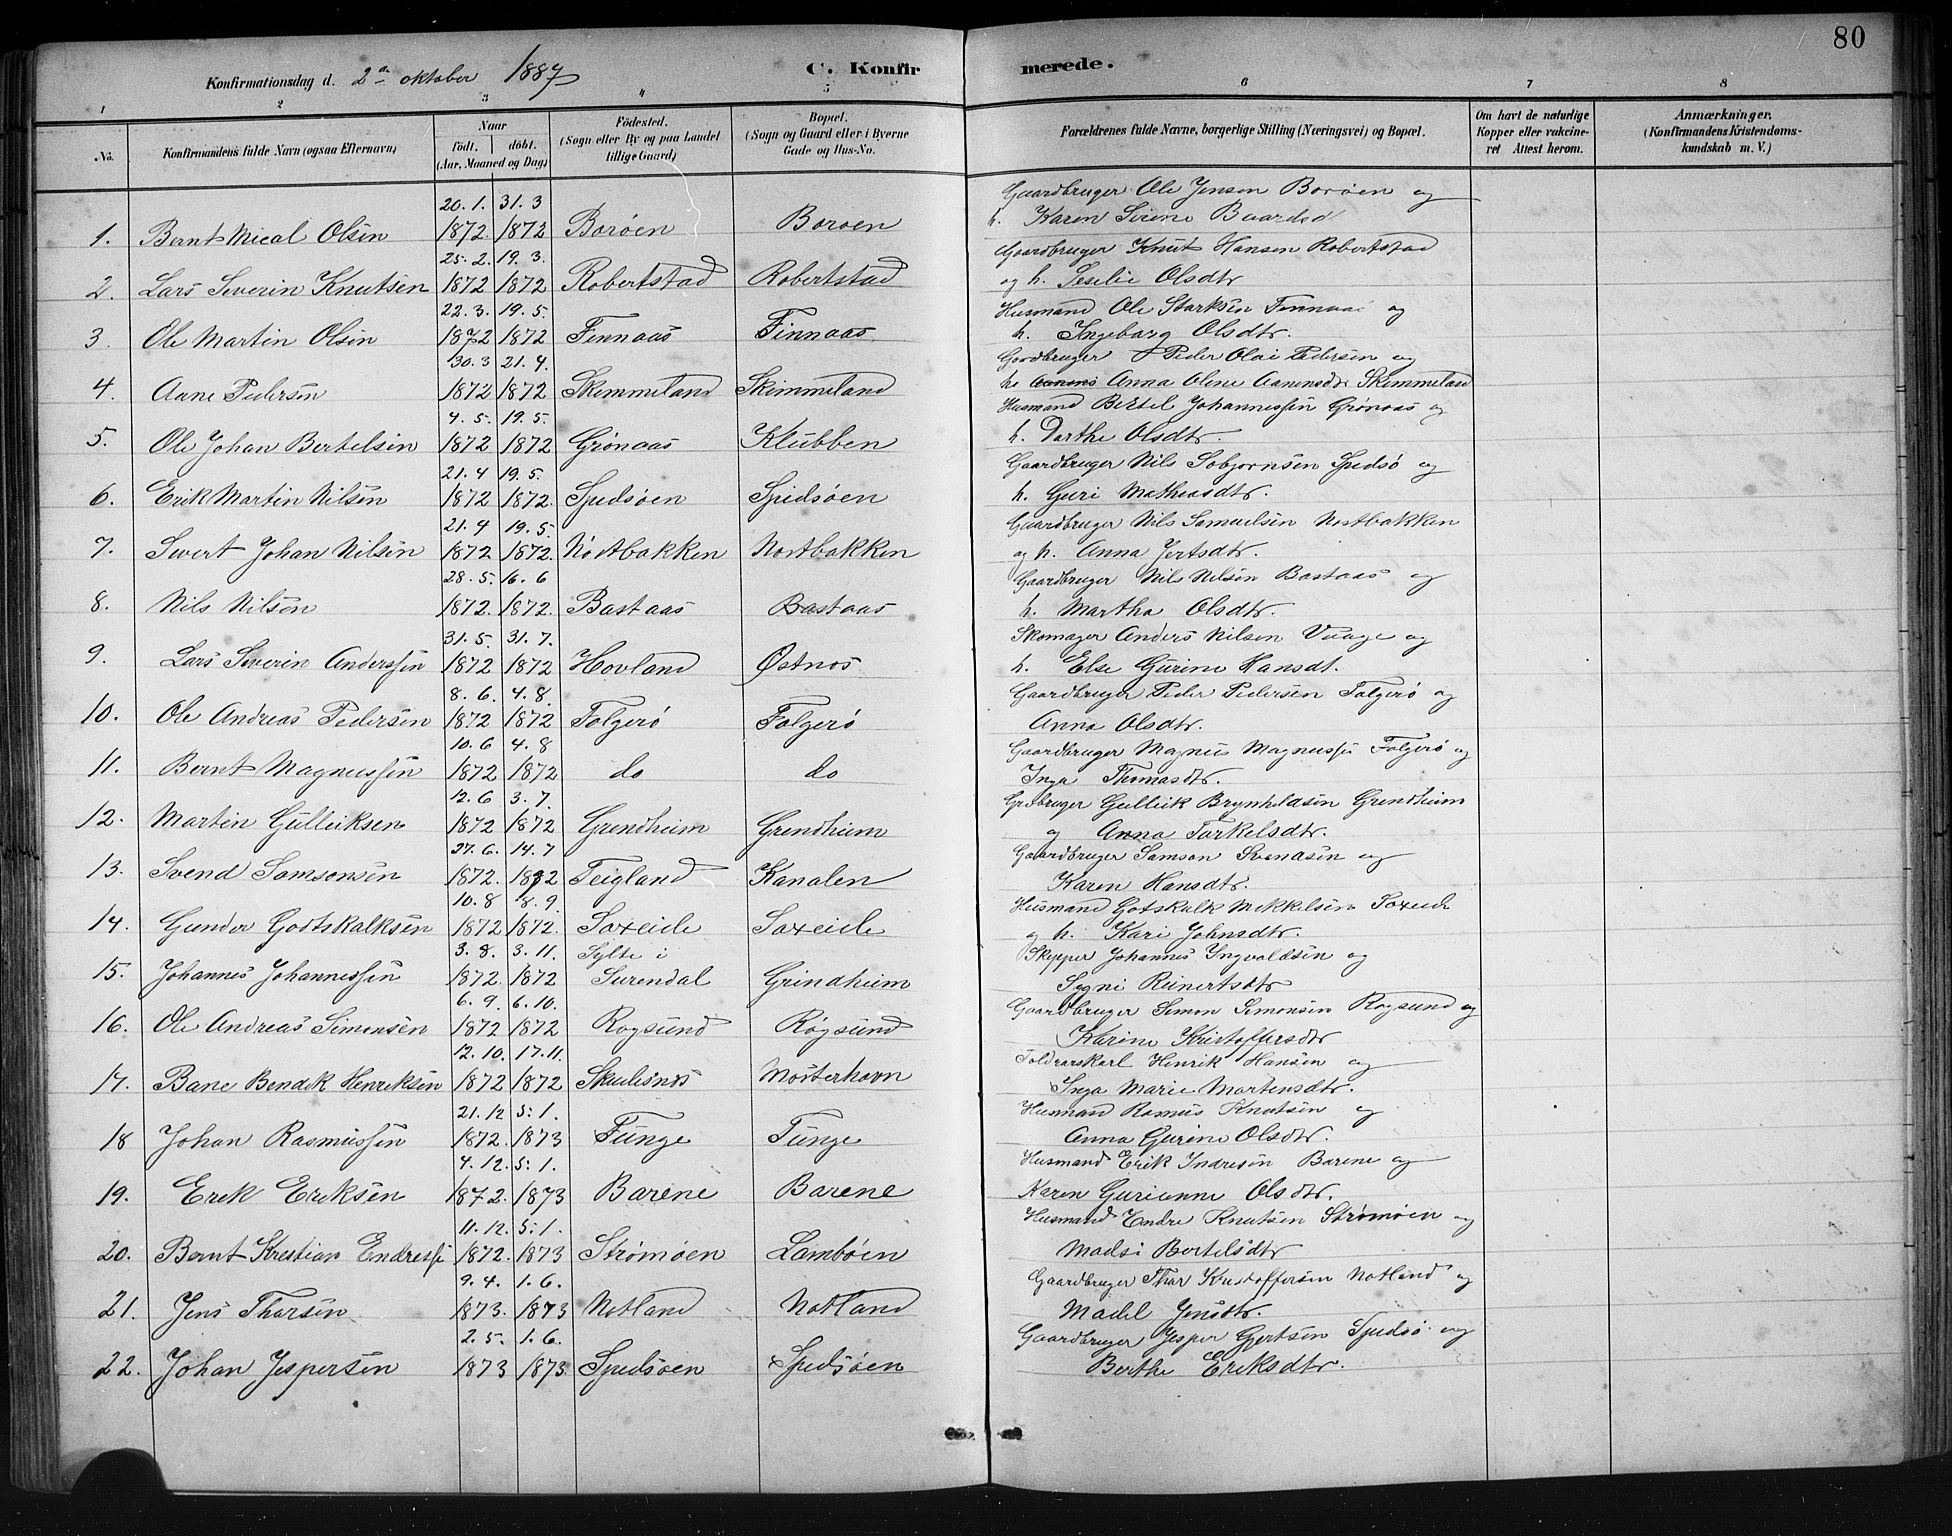 80
Konfirmationsdag d. 2den oktober 1887
C. Konfirmerede.
1 2 3 4 5 6 7 8
No. Konfirmandens fulde Navn (ogsaa Efternavn) Naar födt. döbt. (Aar, Maaned og Dag) Födested. (Sogn eller By og paa Landet tillige Gaard) Bopæl. (Sogn og Gaard eller i Byerne Gade og Hus-No. Forældrenes fulde Navne, borgerlige Stilling (Næringsvei) og Bopæl. Om havt de naturlige Kopper eller vakcineret Attest herom. Anmærkninger. (Konfirmandens Kristendomskundskab m. V.)
20. 1. 31. 3 Gaardbruger Ole Jensen Borøen og
1. Bernt Mical Olsen 1872. 1872 Borøen Boroen h. Karen Serene Baardsd
25. 2. 19. 3. Gaardbruger Knut Hansen Robertstad
2. Lars Severin Knutsen 1872 1872 Robertstad Robertstad og h. Seselie Olsdtr
22. 3. 19. 5. Husmand Ole Storksen Finnaas og
3. Ole Martin Olsen 1872 1872 Finnaas Finnaas h. Ingeborg Olsdtr.
30. 3 21. 4. Gardbruger Peder Olai Pedersen og
4. Aane Pedersen 1872 1872 Skemmeland Skimmeland h. Anna Olene Aanensdtr Skemmeland
4. 5. 19. 5. Husmand Bertel Johannessen Grønaas og
5. Ole Johan Bertelsen 1872 1872 Grønaas Klubben h. Dorthe Olsdtr.
21. 4 19. 5. Gaardbruger Nils Sobjornsen Spedsø og
6. Erik Martin Nilsen 1872 1872. Spedsøen Spidsøen h. Guri Matheasdtr.
21. 4 19. 5. Gaardbruger Nils Samuelsen Nostbakken
7. Sivert Johan Nilsen 1872 1872. Nostbakken Nostbakken og h. Anna Jertsdtr.
28. 5. 16. 6 Gaardbruger Nils Nilsen Bastaas og
8. Nils Nilsen 1872. 1872. Bastaas Bastaas h. Martha Olsdtr.
31. 5. 31. 7. Skomager Anders Nilsen Vaage og
9. Lars Severin Anderssen 1872 1872 Hovland Østnos h. Else Gurine Hansdt.
8. 6. 4. 8. Gaardbruger Peder Pedersen Folgerø og
10. Ole Andreas Pedersen 1872 1872 Folgerø Folgerø Anna Olsdtr.
10. 6 4. 8 Gaardbruger Magnus Magnusse Folgerø og
11. Bernt Magnussen 1872 1872 do do Inga Thomasdtr.
12. 6 3. 7. Grdbruger Gulleik Brynhildsen Grendheim
12. Martin Gulleiksen 1872 1872 Grendheim Grendheim og Anna Torkelsdtr.
27. 6. 14. 7 Gaardbruger Samson Svendsen og
13. Svend Samsonsen 1872. 1872 Teigland Kanalen Karen Hansdtr.
10. 8 8. 9. Husmand Gotskalk Mekkelsen Soxeide
14. Gunder Godtskalksen 1872 1872. Soxeide Soxeide og h. Kari Johnsdtr.
3. 8. 3. 11. Sylte i Skipper Johannes Ingvaldsen og
15. Johannes Johannessen 1872. 1872 Surendal Grindheim Sygni Reinertsdtr
6. 9. 6. 10. Gaardbruger Simon Simonsen Rogsund og
16. Ole Andreas Simonsen 1872 1872 Rogsund Røgsund Karine Kristoffersdtr
12. 10. 17. 11. Toldrorskarl Henrik Hansen og
17. Bane Bendik Henriksen 1872 1872 Skulesnes Mosterhavn Inga Marie Martensdtr.
21. 12 5. 1. Husmand Rasmus Knutsen og
18 Johan Rasmussen 1872. 1873 Tunge Tunge Anna Gurine Olsdtr.
4. 12. 5. 1. Husmand Erik Indresen Barene og
19. Erik Eriksen 1872. 1873 Barene Barene Karen Gurianne Olsdtr.
11. 12. 5. 1. Husmand Endre Knutsen Strømøen og
20. Bernt Krestian Endresse 1872. 1873 Strømøen Lambøen Madsi Bertelsdtr
9. 4. 1. 6. Gaardbruger Thor Kristoffersen Notland og
21. Jens Thorsen 1873. 1873 Notland Notland Madel Jensdtr.
2. 5. 1. 6. Gaardbruger Jesper Gjertsen Spedsø og
22. Johan Jespersen 1873 1873. Spedsøen Spedsøen Berthe Eriksdtr.